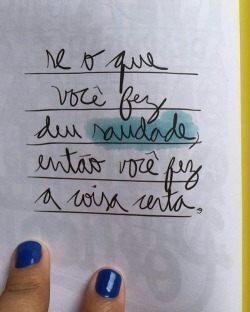 se o que
você fez
deu saudade,
então você fez
a coisa certa.